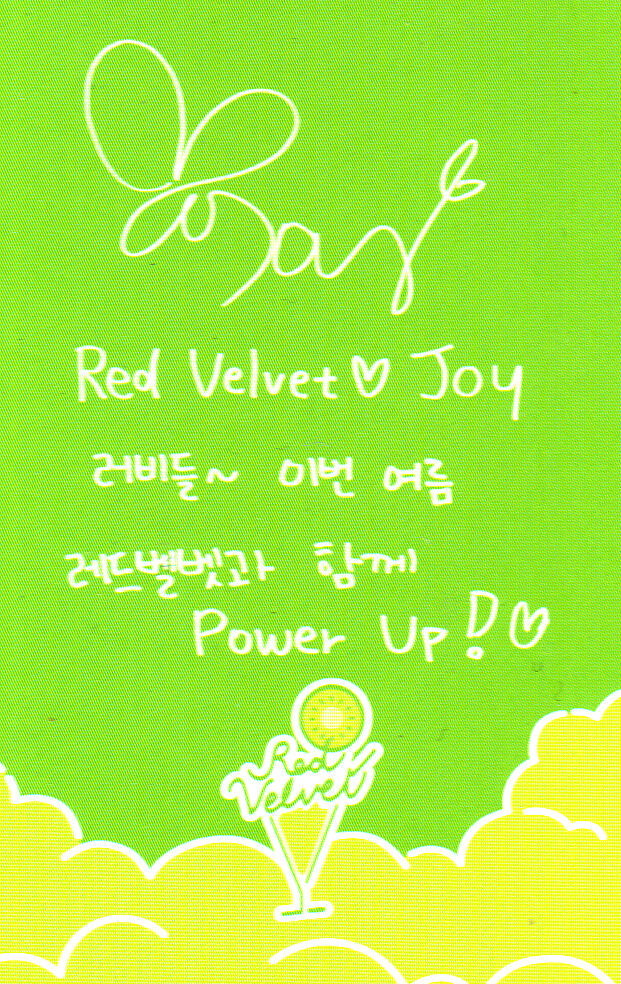 Joy
Red Velvet♡ Joy
러비들~ 이번 여름
레드벨벳과 함께
Power Up!♡
Red
Velvet